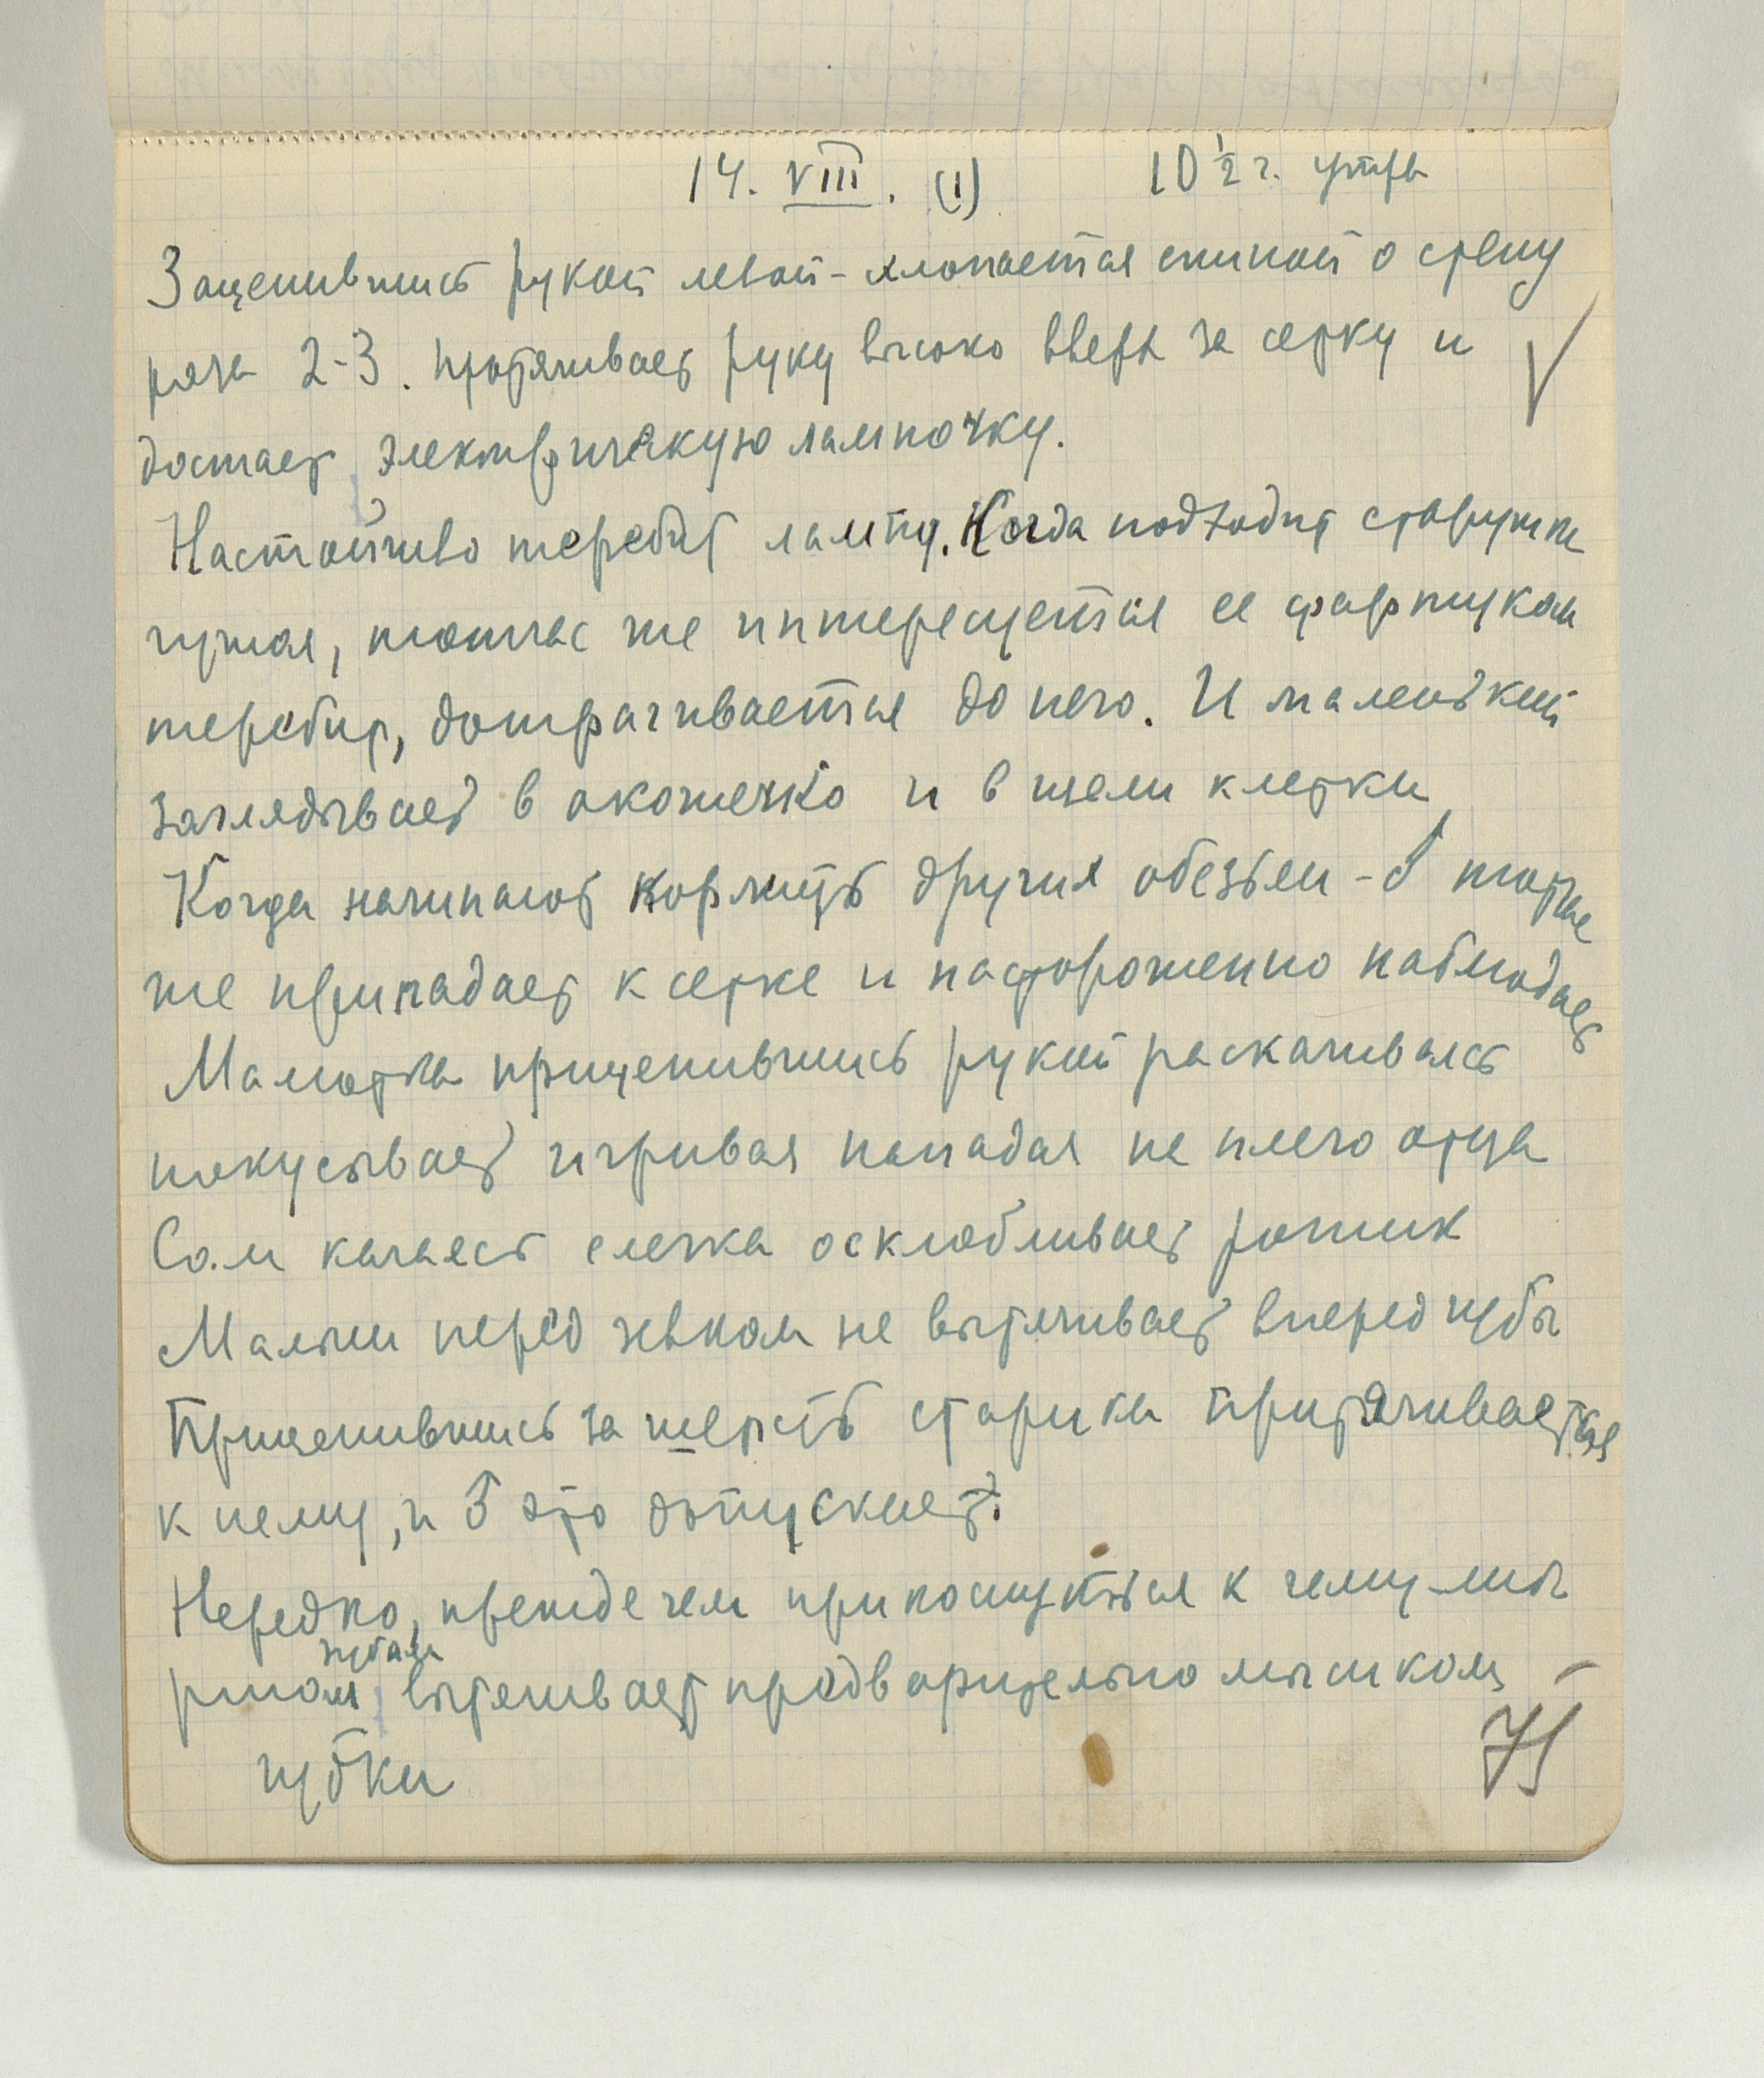 14. VIII. (1) 10 1/2 ч. утра
Зацепившись рукой левой - хлопается спиной о стену
раза 2-3. протягивает руку высоко вверх за сетку и
достает электрическую лампочку.
Настойчиво теребит лампу. Когда подходит старушка
чужая, тотчас же интересуется ее фартуком
теребит, дотрагивается до него. И маленький
заглядывает в окошечко и в щели клетки
Когда начинают кормить других обезьян - ♂ тотчас
же припадает к сетке и настороженно наблюдает
Малютка прицепившись рукой раскачиваясь
покусывает игривая нападая на плечо отца
Сам качаясь слегка осклабливает ротик
Малыш перед зевком не вытягивает вперед губы
Прицепившись за шерсть старика притягивается
к нему, и ♂ это допускает.
Нередко, прежде чем прикоснуться к чему-либо
зубами
ртом вытягивает предварительно мыском
губки
75